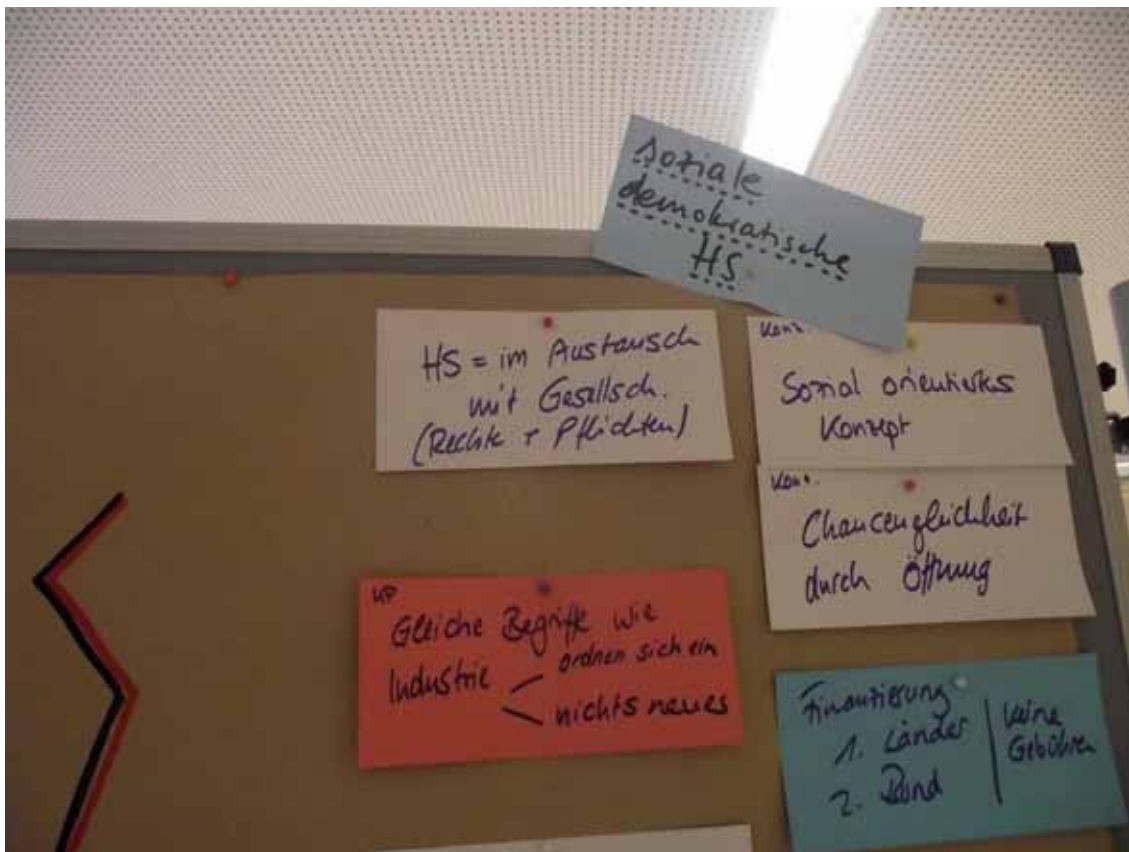 soziale
demokratische
HS
HS = im Austausch
mit Gesellsch.
(Rechte + Pflichten)
Konz.
Sozial orientiertes
Konzept
Konz.
Chancengleichheit
durch Öffnung
UP
Gleiche Begriffe wie
Industrie
ordnen sich ein
nichts neues
Finanzierung
1. Länder
2. Bund
keine
Gebühren